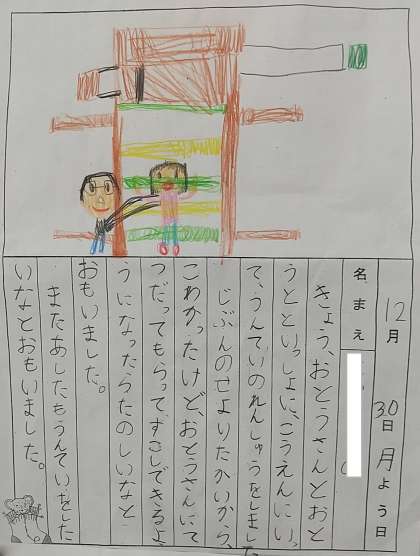 12月30日月よう日
名まえ
きょう、おとうさんとおと
うとといっしょに、こうえんにいっ
て、うんていのれんしゅうをしました
じぶんのせよりたかいから、
こわかったけど、おとうさんにて
つだってもらって、すこしできるよ
うになったらたのしいなと
おもいました。
またあしたもうんていをした
いなとおもいました。